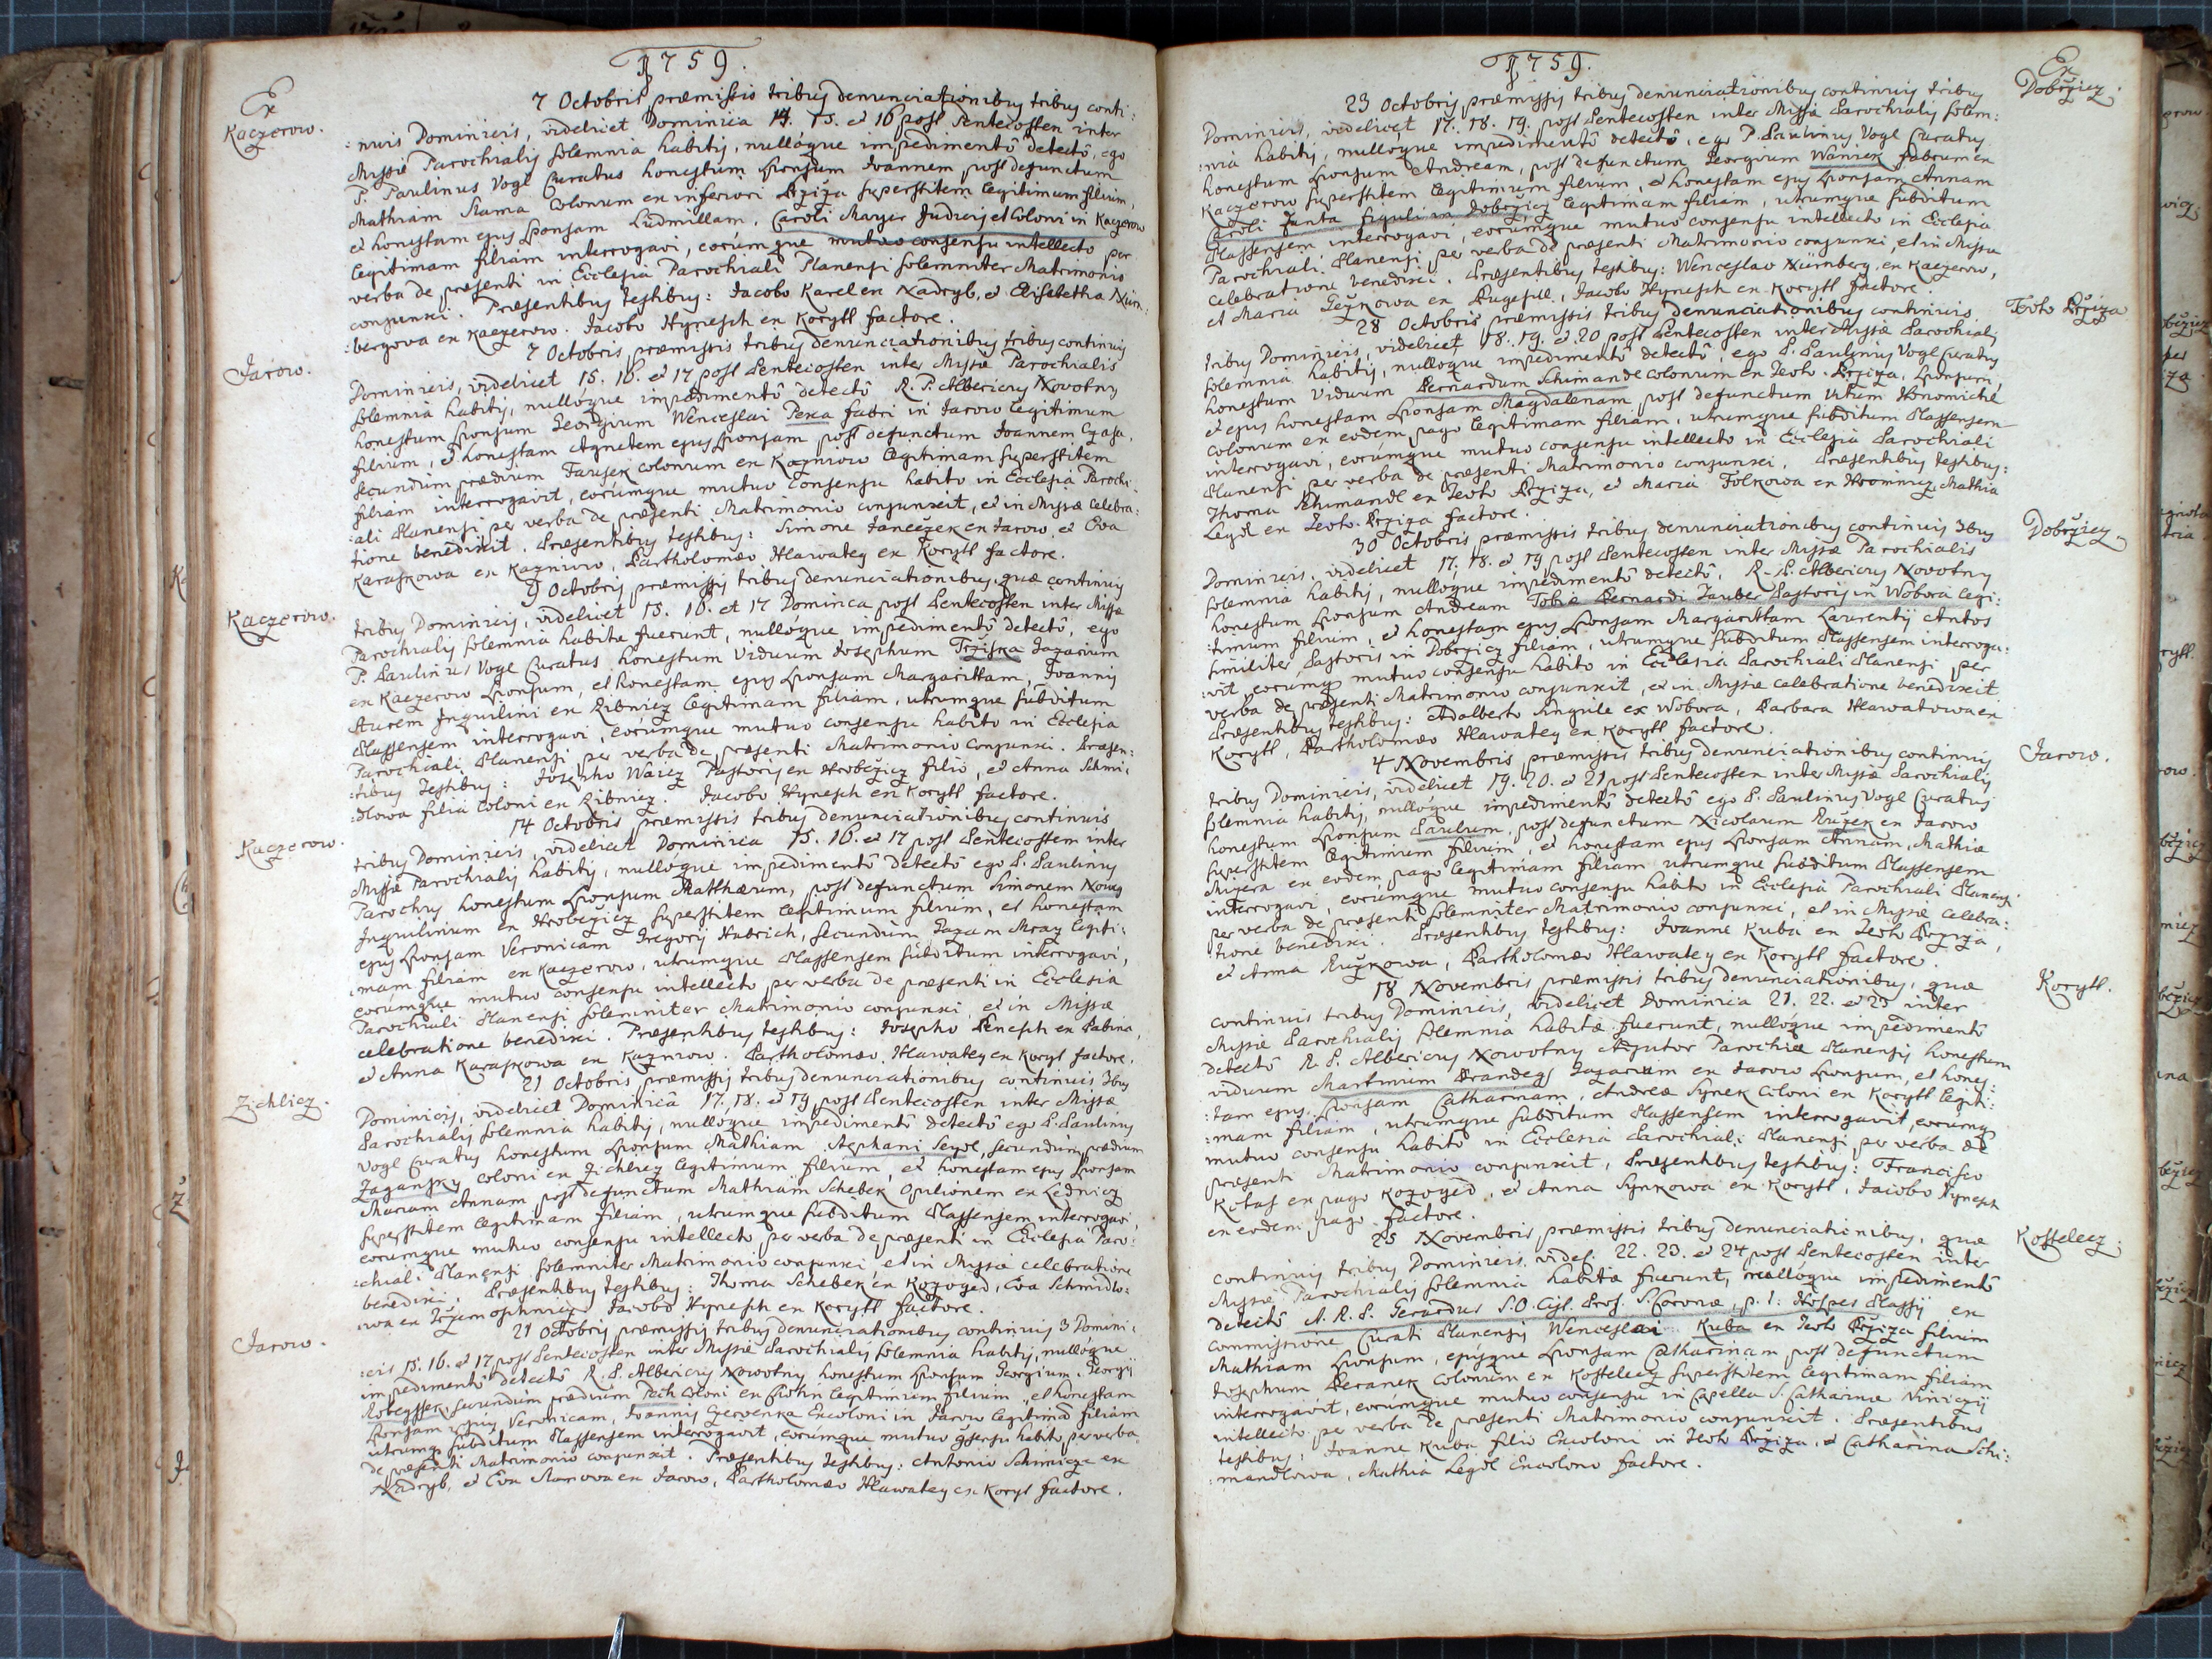 1759.
Ex
Kaczerow.
7 Octobris præmissis tribus denunciationibus tribus conti:
:nuis Dominicis, videlicet Dominica 14. 15. et 16 post Pentecosten inter
Missæ Parochialis solemnia habitis, nullóque impedimentô detectô, ego
P. Paulinus Vogl Curatus honestum sponsum Joannem post defunctum
Mathiam Slama Colonum ex inferiori Brziza superstitem legitimum filium,
et honestam ejus sponsam Ludmillam, Caroli Mayer Judicis et Coloni in Kaczerow
legitimam filiam interrogavi, eorúmque mutuo consensu intellecto per
verba de præsenti in Ecclesia Parochiali Planensi solemniter Matrimonio
conjunxi. Præsentibus testibus: Jacobo Karel ex Nadryb, et Elisabetha Nürn:
:bergova ex Kaczerow. Jacobo Hynesch ex Korytl factore.
Jarow.
7 Octobris præmissis tribus denunciationibus tribus continuis
Dominicis, videlicet 15. 16. et 17 post Pentecosten inter Missæ Parochialis
solemnia habitis, nullóque impedimentô detectô R. P. Albericus Novotny
honestum sponsum Georgium Wenceslai Pexa fabri in Jarow legitimum
filium, et honestam Agnetem ejus sponsam post defunctum Joannem Czasa,
secundum prædium Farisek colonum ex Kazniow legitimam superstitem
filiam interrogavit, eorúmque mutuo consensu habito in Ecclesia Parochi:
:ali Planensi per verba de præsenti Matrimonio conjunxit, et in Missæ celebra:
tione benedixit. Præsentibus testibus: Simone Janeczek ex Jarow, et Eva
Karaskowa ex Kazniow, Bartholomæo Hlawatey ex Korytl factore.
Kaczerow.
9 Octobris præmissis tribus denunciationibus, quæ continuis
tribus Dominicis, videlicet 15. 16. et 17 Dominica post Pentecosten inter Missæ
Parochialis solemnia habitæ fuerunt, nullóque impedimentô detectô, ego
P. Paulinus Vogl Curatus honestum Viduum Josephum Trziska Jazarium
ex Kaczerow sponsum, et honestam ejus sponsam Margarittam, Joannis
Inquilini ex Ribnicz legitimam filiam, utrumque subditum
Plassensem interrogavi, eorúmque mutuo consensu habito in Ecclesia
Parochiali Planensi per verba de præsenti Matrimonio conjunxi. Præsen:
:tibus testibus: Josepho Waicz Pastoris ex Hrobczicz filio, et Anna Schmi:
:dlowa filia coloni ex Ribnicz. Jacobo Hynesch ex Korytl factore.
Kaczerow.
14 Octobris præmissis tribus denunciationibus continuis
tribus Dominicis, videlicet Dominica 15. 16. et 17 post Pentecosten inter
Missæ Parochialis habitis, nullóque impedimentô detectô ego P. Paulinus
Parochus honestum sponsum Matthæum, post defunctum Simonem Nowy
Inquilinum ex Hrobczicz superstitem legitimum filium, et honestam
ejus sponsam Veronicam Gregorij Hubrich, secundum Jazam Mraz legiti:
:mam filiam ex Kaczerow, utrumque Plassensem subditum interrogavi,
eorúmque mutuo consensu intellecto per verba de præsenti in Ecclesia
Parochiali Planensi solemniter Matrimonio conjunxi, et in Missæ
celebratione benedixi. Præsentibus testibus: Josepho Benesch ex Babina,
et Anna Karaskowa ex Kazniow. Bartholomæo Hlawatey ex Koryt factore.
Zichlicz.
21 Octobris præmissis tribus denunciationibus continuis 3bus
Dominicis, videlicet Dominicâ 17. 18. et 19 post Pentecosten inter Missæ
Parochialis solemnia habitis, nullóque impedimentô detectô ego P. Paulinus
Vogl Curatus honestum sponsum Mathiam, Stephani Seydl, secundum prædium
Zagansky coloni ex Zichlicz legitimum filium, et honestam ejus sponsam
Mariam Annam post defunctum Mathiam Schebek Opilionem ex Lednicz
superstitem legitimam filiam, utrumque subditum Plassensem interrogavi,
eorúmque mutuo consensu intellecto per verba de præsenti in Ecclesia Paro:
:chiali Planensi solemniter Matrimonio conjunxi et in Missæ celebratione
benedixi. Præsentibus testibus: Thoma Schebek ex Kozoged, Eva Schmidlo:
:wa ex Trzemoschnicz Jacobo Hynesch ex Korytl factore.
Jarow.
21 Octobris præmissis tribus denunciationibus continuis 3 Domini:
:cis 15. 16. et 17 post Pentecosten inter Missæ Parochialis solemnia habitis, nullóque
impedimentô detectô R. P. Albericus Novotny honestum sponsum Georgium, Georgij
secundum prædium Pech coloni ex legitimum filium, et honestam
sponsam ejus Veronicam, Joannis Czervenka Excoloni in Jarow legitimâ filiam
utrumq subditum Plassensem interrogavit, eorúmque mutuo consensu habito, per verba
de præsenti Matrimonio conjunxit. Præsentibus testibus: Antonio Schimicze ex
Nadryb, et Eva Slamowa ex Jarow, Bartholomæo Hlawatey ex Koryt factore.
1759.
Ex
Dobrzicz.
23 Octobris præmissis tribus denunciationibus continuis tribus
Dominicis, videlicet 17. 18. 19. post Pentecosten inter Missæ Parochialis solem:
:nia habitis, nullóque impedimentô detectô, ego P. Paulinus Vogl Curatus
honestum sponsum Andream, post defunctum Georgium Waniek fabrum ex
Kaczerow superstitem legitimum filium, et honestam ejus sponsam Annam
Caroli Janta figuli in Dobrzicz legitimam filiam, utrumque subditum
Plassensem interrogavi, eorúmque mutuo consensu intellecto in Ecclesia
Parochiali Planensi per verba de præsenti Matrimonio conjunxi, et in Missæ
celebratione benedixi. Præsentibus testibus: Wenceslao Nürnberg ex Kaczerow,
et Maria Jeżkowa ex Bugesill, Jacobo Hynesch ex Korytl factore.
Teoto Brziza
28 Octobris præmissis tribus denunciationibus continuis
tribus Dominicis, videlicet 18. 19. et 20 post Pentecosten inter Missæ Parochialis
solemnia habitis, nullóque impedimentô detectô, ego P. Paulinus Vogl Curatus
honestum Viduum Bernardum Schimandl colonum ex Teoto-Brziza, sponsum,
et ejus honestam sponsam Magdalenam post defunctum Vitum
colonum ex eodem pago legitimam filiam, utrumque subditum Plassensem
interrogavi, eorúmque mutuo consensu intellecto in Ecclesia Parochiali
Planensi per verba de præsenti Matrimonio conjunxi. Præsentibus testibus:
Thoma Schimandl ex Teoto Brziza, et Maria Folkowa ex Hromnicz, Mathia
Legdl ex Teoto-Brziza factore.
Dobrzicz.
30 Octobris præmissis tribus denunciationibus continuis 3bus
Dominicis, videlicet 17. 18. et 19 post Pentecosten inter Missæ Parochialis
solemnia habitis, nullóque impedimentô detectô, R. P. Albericus Novotny
honestum sponsum Andream Tobiæ Bernardi Tauber Pastoris in Wobora legi:
:timum filium, et honestam ejus sponsam Margarittam Laurentij Antos
similiter Pastoris in Dobrzicz filiam, utrumque subditum Plassensem interroga:
:vit, eorúmq mutuo consensu habito in Ecclesia Parochiali Planensi per
verba de præsenti Matrimonio conjunxit, et in Missæ celebratione benedixit.
Præsentibus testibus: Adalberto Singule ex Wobora, Barbara Hlawatowa ex
Korytl, Bartholomæo Hlawatey ex Korytl factore.
Jarow.
4 Novembris præmissis tribus denunciationibus continuis
tribus Dominicis, videlicet 19. 20. et 21 post Pentecosten inter Missæ Parochialis
solemnia habitis, nullóque impedimentô detectô ego P. Paulinus Vogl Curatus
honestum sponsum Paulum, post defunctum Nicolaum Ružek ex Jarow
superstitem legitimum filium, et honestam ejus sponsam Annam, Mathiæ
Misera ex eodem pago legitimam filiam utrumque subditum Plassensem
interrogavi, eorúmque mutuo consensu habito in Ecclesia Parochiali Planensi
per verba de præsenti solemniter Matrimonio conjunxi, et in Missæ celebra:
:tione benedixi. Præsentibus testibus: Joanne Kuba ex Teoto Brziza,
et Anna Ružkowa, Bartholomæo Hlawatey ex Korytl factore.
Korytl.
18 Novembris præmissis tribus denunciationibus, quæ
continuis tribus Dominicis, videlicet Dominica 21. 22. et 23 inter
Missæ Parochialis solemnia habitæ fuerunt, nullóque impedimentô
detectô R. P. Albericus Novotny Adjutor Parochiæ Planensis honestum
viduum Martinum Brandegs Jazarium ex Jarow sponsum, et hones:
:tam ejus sponsam Catharinam, Andreæ Synek Coloni ex Korytl legiti:
:mam filiam, utrumque subditum Plassensem interrogavit, eorumq
mutuo consensu habito in Ecclesia Parochiali Planensi per verba de
præsenti Matrimonio conjunxit, Præsentibus testibus: Francisco
Kotas ex pago Kozoged, et Anna Synkowa ex Korytl, Jacobo Hynesch
ex eodem pago factore.
Kosstelecz.
25 Novembris præmissis tribus denunciationibus, quæ
continuis tribus Dominicis, videl: 22. 23. et 24 post Pentecosten inter
Missæ Parochialis solemnia habitæ fuerunt, nullóque impedimentô
detectô A. R. P. Gerardus S. O. Cist. Prof. S. Coronæ, p. t. Hospes Plassij ex
commissione Curati Planensis Wenceslai Kuba ex Teoto Brziza filium
Mathiam sponsum, ejúsque sponsam Catharinam post defunctum
Josephum Beranek Colonum ex Kosstelecz superstitem legitimam filiam
interrogavit, eorúmque mutuo consensu in Capella S. Catharinæ
intellecto per verba de præsenti Matrimonio conjunxit. Præsentibus
testibus: Joanne Kuba filio Excoloni in Teoto Brziza, et Catharina Schi:
:mandlowa, Mathia Legdl Excolono factore.